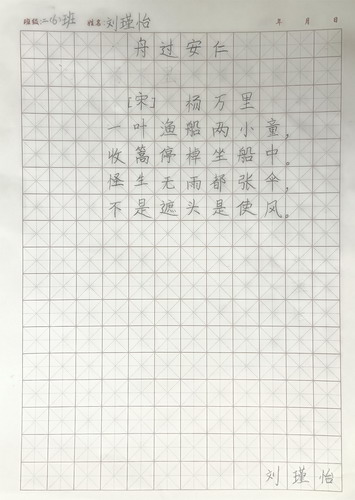 班级:二(6)班 姓名:刘瑾怡 年 月 日
舟过安仁
[宋] 杨万里
一叶渔船两小童，
收篙停棹坐船中。
怪生无雨都张伞，
不是遮头是使风。
刘瑾怡